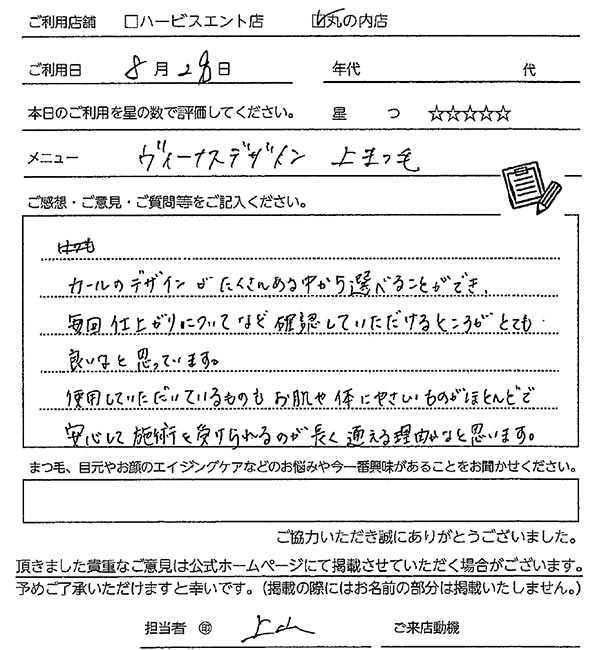 ご利用店舗 □ハービスエント店 ☑丸の内店
ご利用日 8月28日 年代 代
本日のご利用を星の数で評価してください。 星 つ ☆☆☆☆☆
メニュー ヴィーナスデザイン 上まつ毛
ご感想・ご意見・ご質問等をご記入ください。
カールのデザインがたくさんある中から選べることができ、
毎回仕上がりについてなど確認していただけるところがとても
良いなと思っています。
使用していただいているものもお肌や体にやさしいものがほとんどで
安心して施術を受けられるのが長く通える理由かなと思います。
まつ毛、目元やお顔のエイジングケアなどのお悩みや今一番興味があることをお聞かせください。
ご協力いただき誠にありがとうございました。
頂きました貴重なご意見は公式ホームページにて掲載させていただく場合がございます。
予めご了承いただけますと幸いです。（掲載の際にはお名前の部分は掲載いたしません。）
担当者 ㊞ 上山 ご来店動機